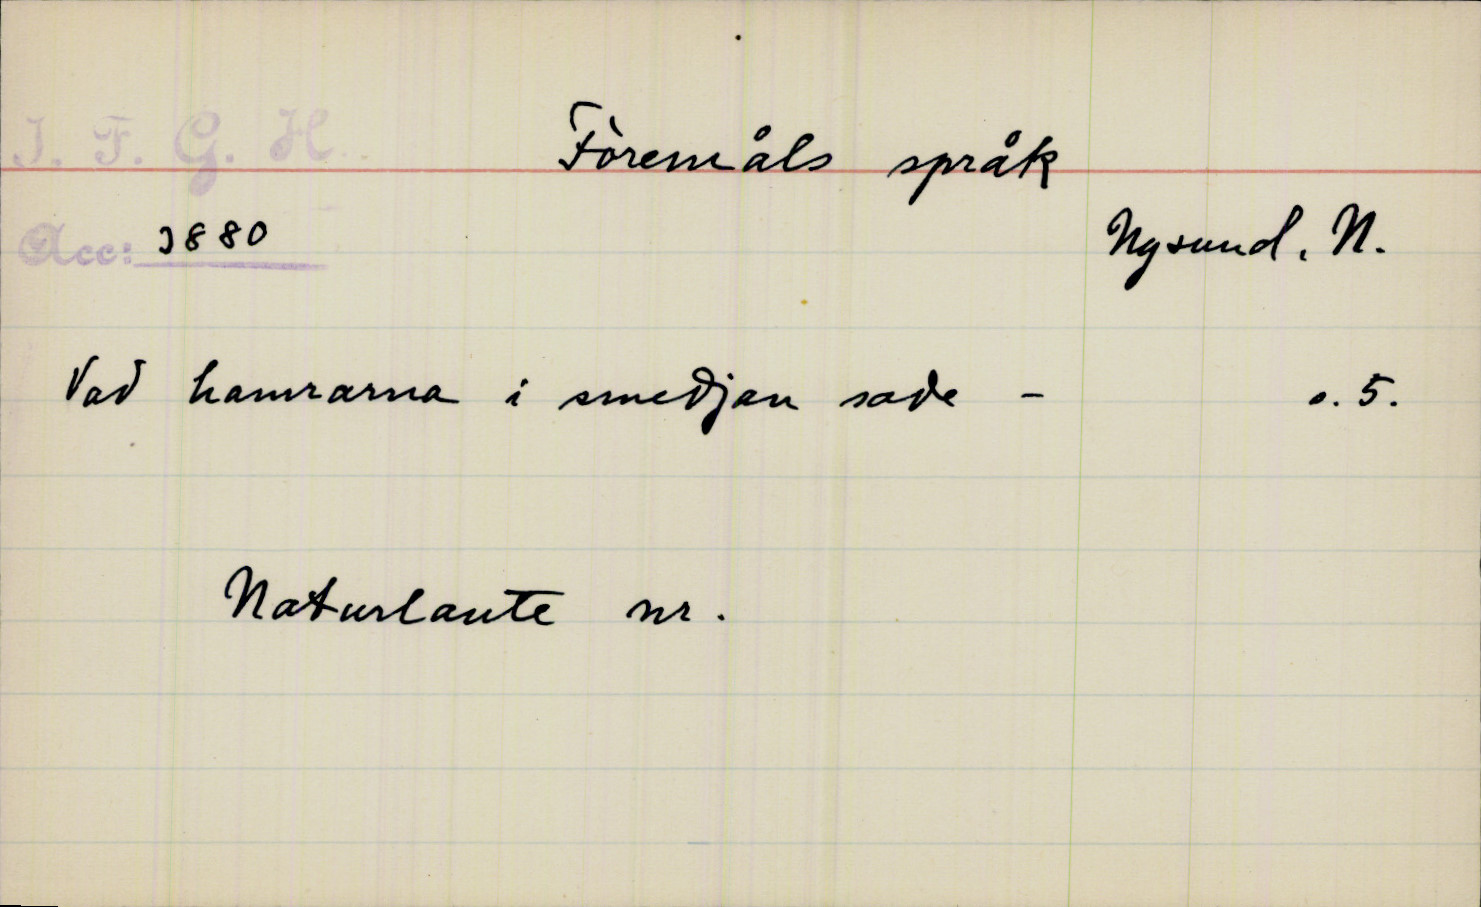 I. F. G. H.
Föremåls språk
Acc: 3880
Nysund. N.
Vad hamrarna i smedjan sade - s. 5.
Naturlaute nr.